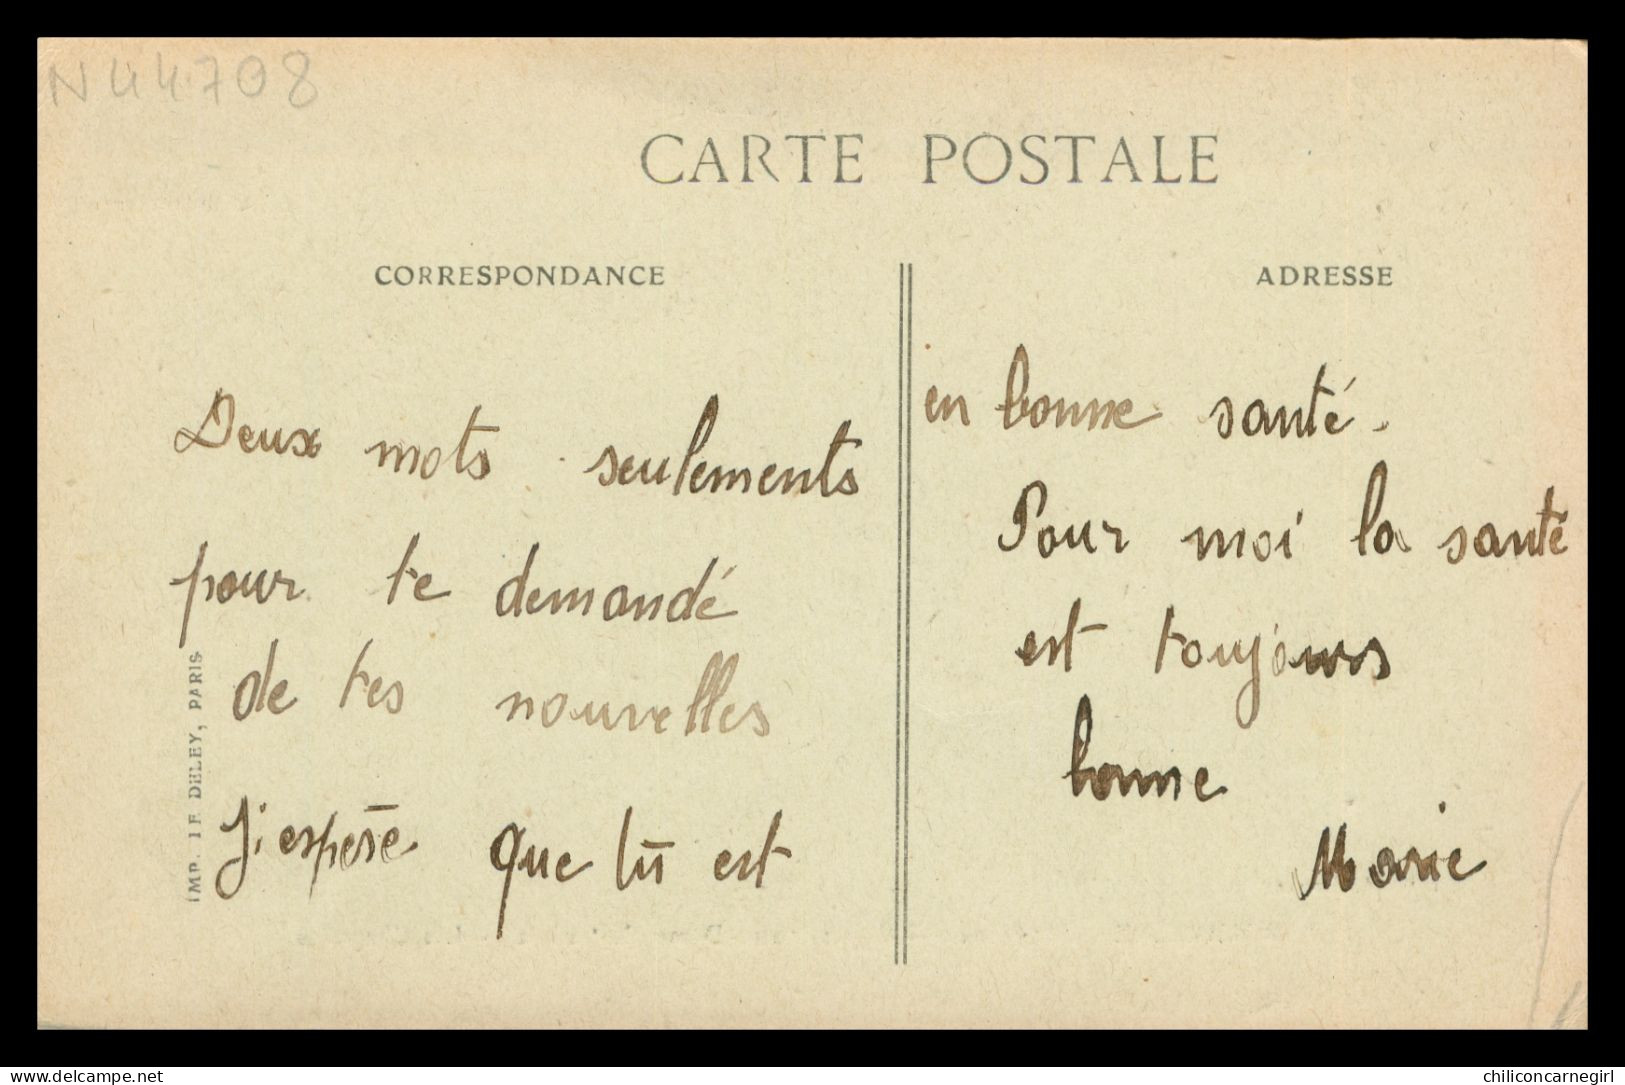 N44708
CARTE POSTALE
CORRESPONDANCE
Deux mots seulements
pour te demandé
de tes nouvelles
J'i espère que tu est
IMP. LE DELEY, PARIS
ADRESSE
en bonne santé.
Pour moi la santé
est toujours
bonne
Marie
www.delcampe.net
chiliconcarnegirl